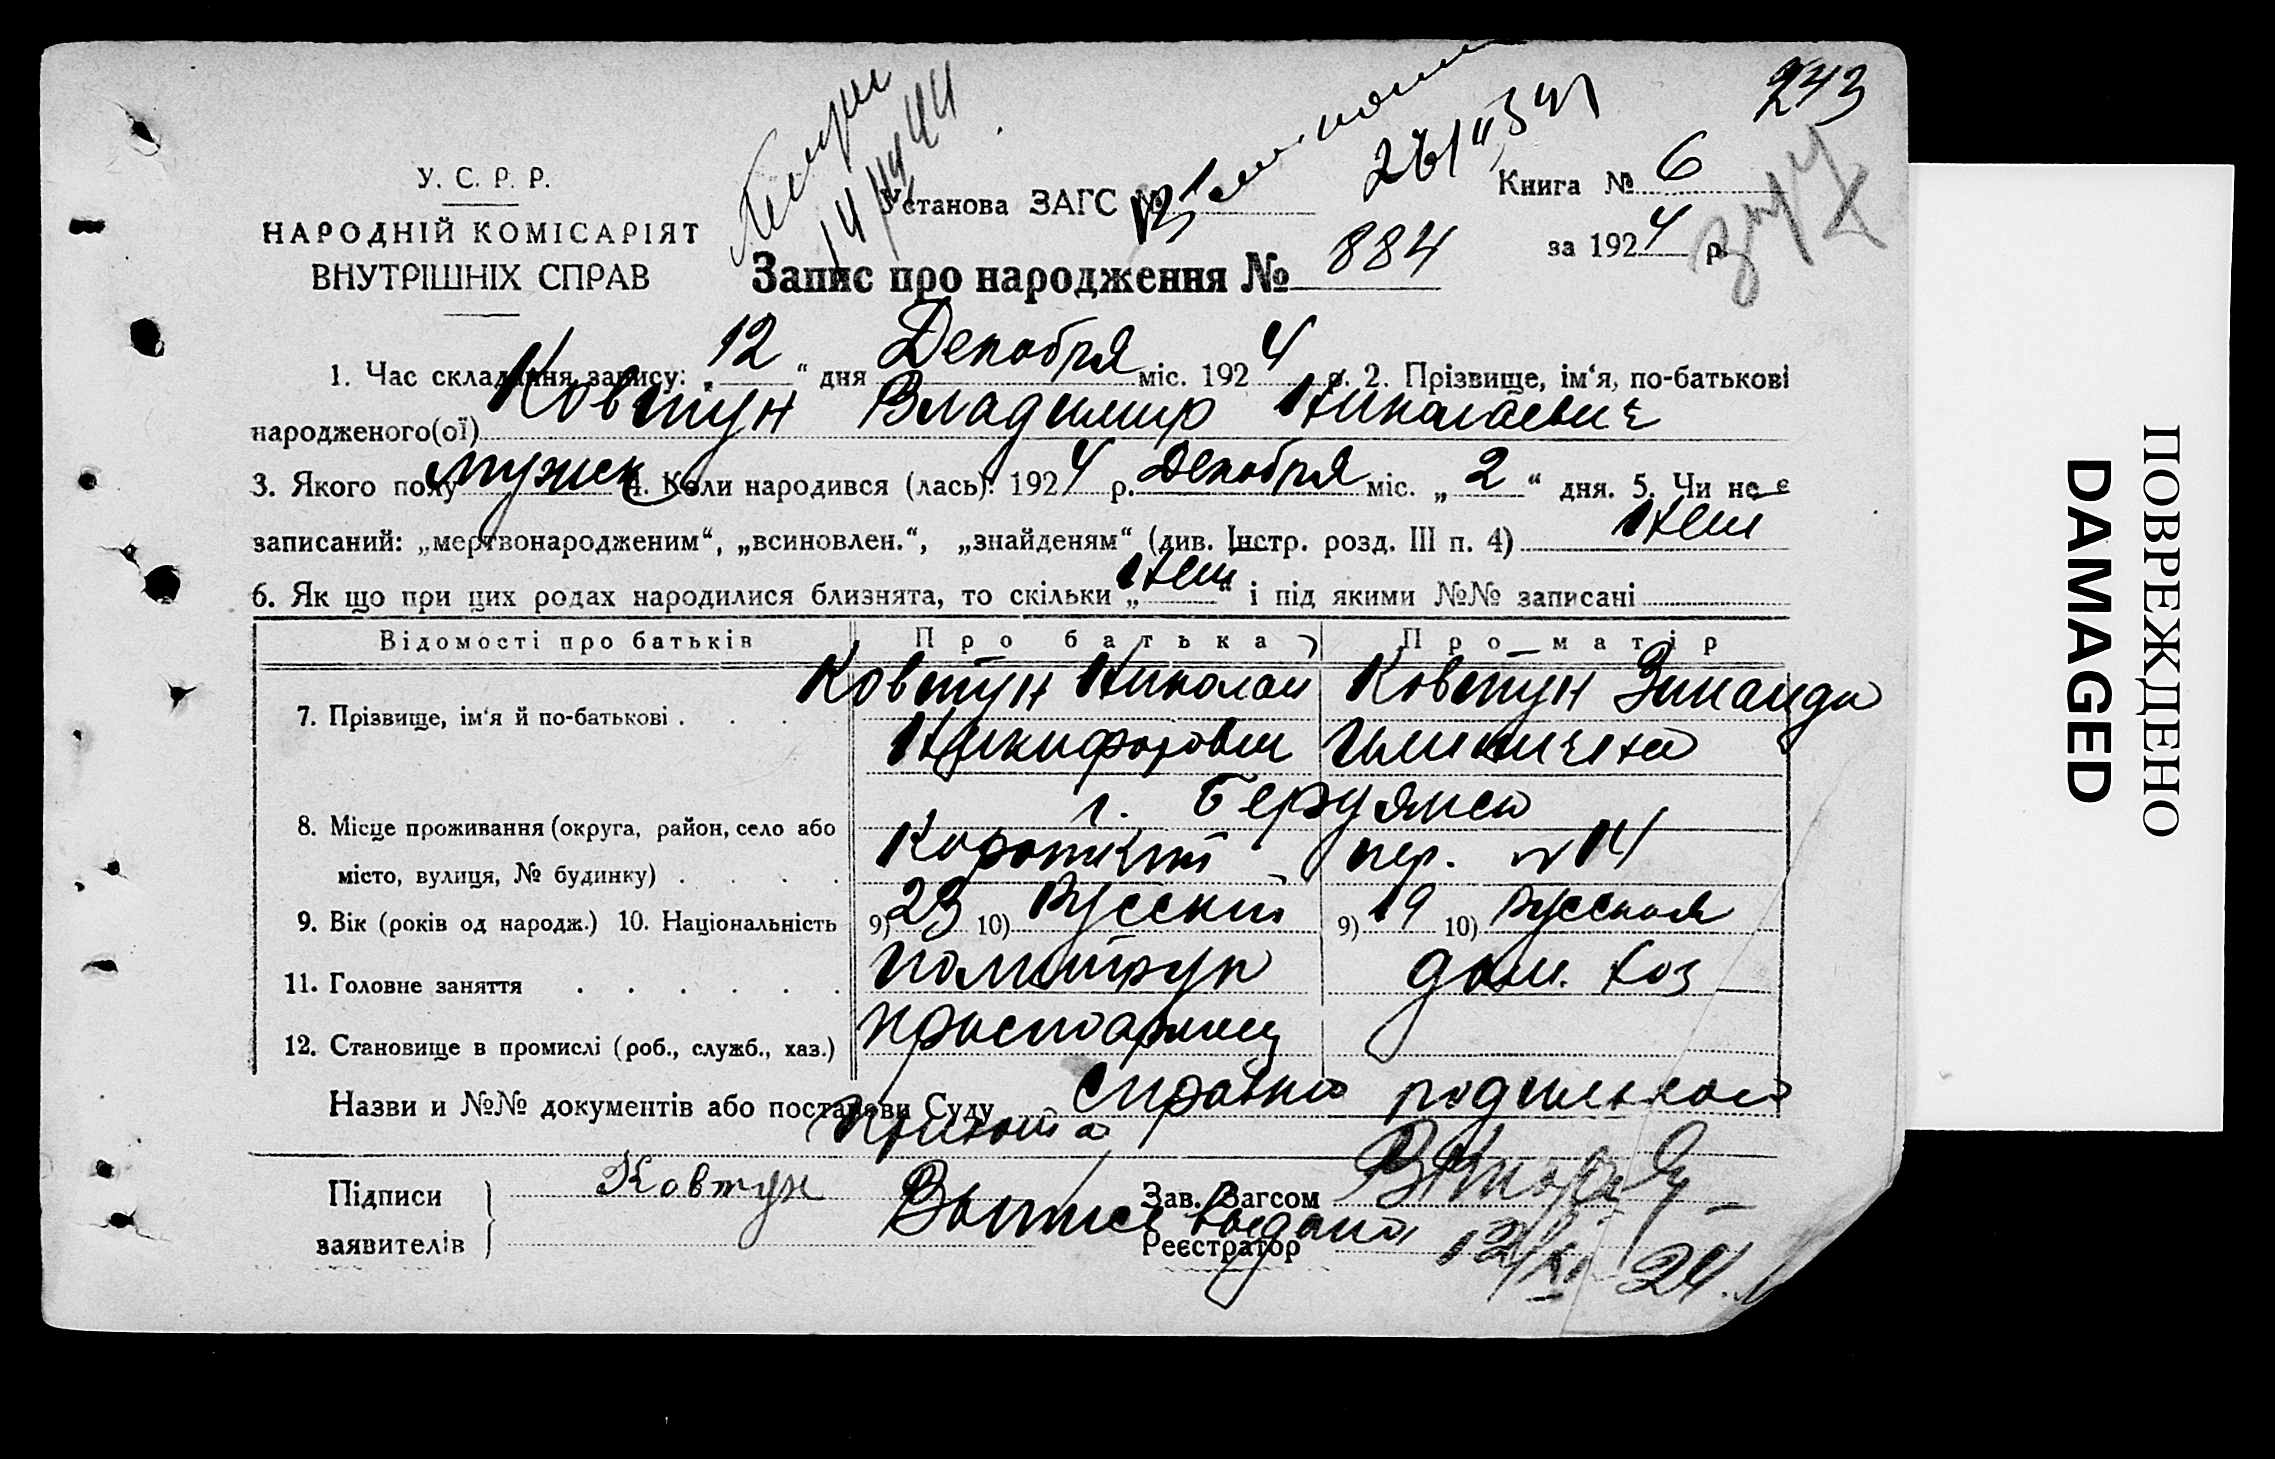 243
У. С. Р. Р.
НАРОДНІЙ КОМІСАРІЯТ
ВНУТРІШНІХ СПРАВ
Установа ЗАГС №
Книга № 6
за 1924 р.
Запис про народження № 884
1. Час складання запису: „12“ дня Декабря міс. 1924 р. 2. Прізвище, ім'я, по-батькові
народженого(ої) Ковтун Владимир Николаевич
3. Якого полу мужск 4. Коли народився (лась): 1924 р. Декабря міс. „2“ дня. 5. Чи не є
записаний: „мертвонародженим“, „всиновлен.“, „знайденям“ (див. Інстр. розд. III п. 4) Нет
6. Як що при цих родах народилися близнята, то скільки „Нет“ і під якими №№ записані
Відомості про батьків Про батька Про матір
7. Прізвище, ім'я й по-батькові Ковтун Николай Ковтун Зинаида
Никифорович
г. Бердянск
8. Місце проживання (округа, район, село або
місто, вулиця, № будинку) Короткий пер. № 14
9. Вік (років од народж.) 10. Національність 9) 23 10) Русский 9) 19 10) Русская
11. Головне заняття Политрук дом. хоз
12. Становище в промислі (роб., служб., хаз.) красноармеец
Назви и №№ документів або постанови Суду Справка родильного
приюта
Підписи
заявителів
Ковтун
Зав. Загсом
Выпись выдана
Реєстратор
12/XI 24.
ПОВРЕЖДЕНО
DAMAGED